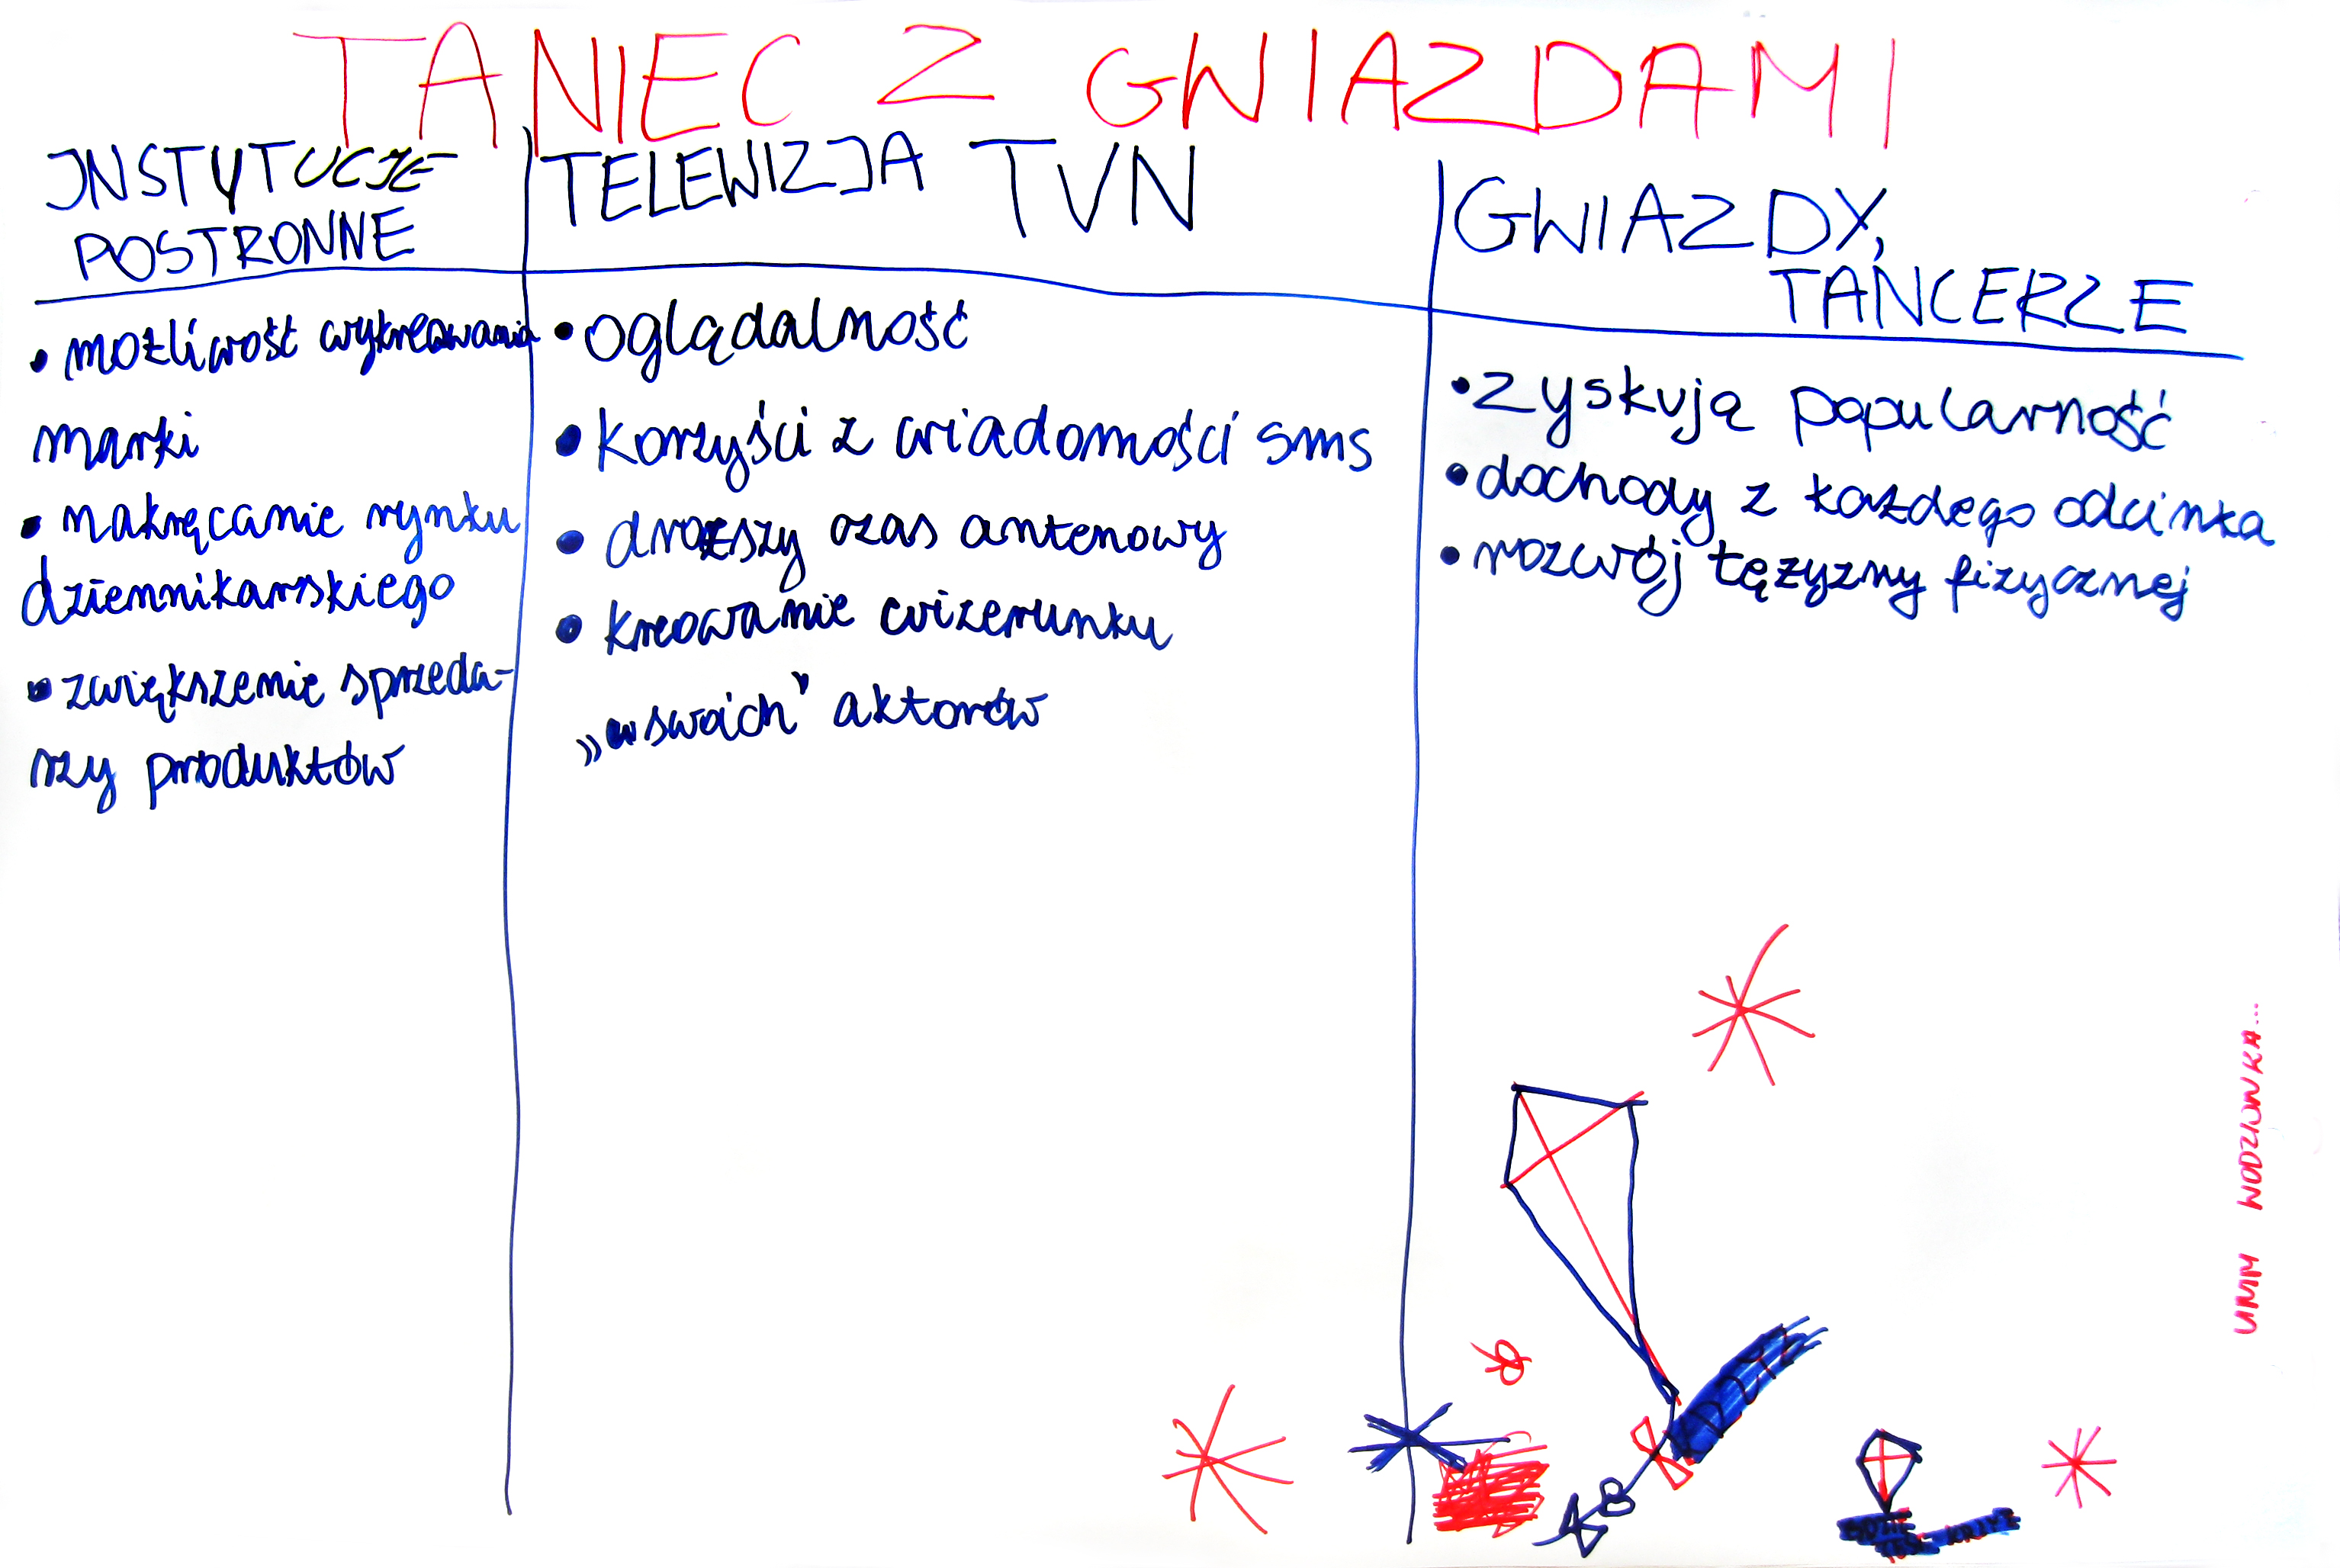 TANIEC Z GWIAZDAMI
INSTYTUCJE
POSTRONNE
• możliwość wykreowania
marki
• nakręcanie rynku
dziennikarskiego
• zwiększenie sprzeda-
rzy produktów
TELEWIZJA TVN
• oglądalność
• korzyści z wiadomości sms
• droższy czas antenowy
• kreowanie wizerunku
„swoich” aktorów
GWIAZDY,
TANCERZE
• zyskują popularność
• dochody z każdego odcinka
• rozwój tężyzny fizycznej
UMM WODZIONKA...